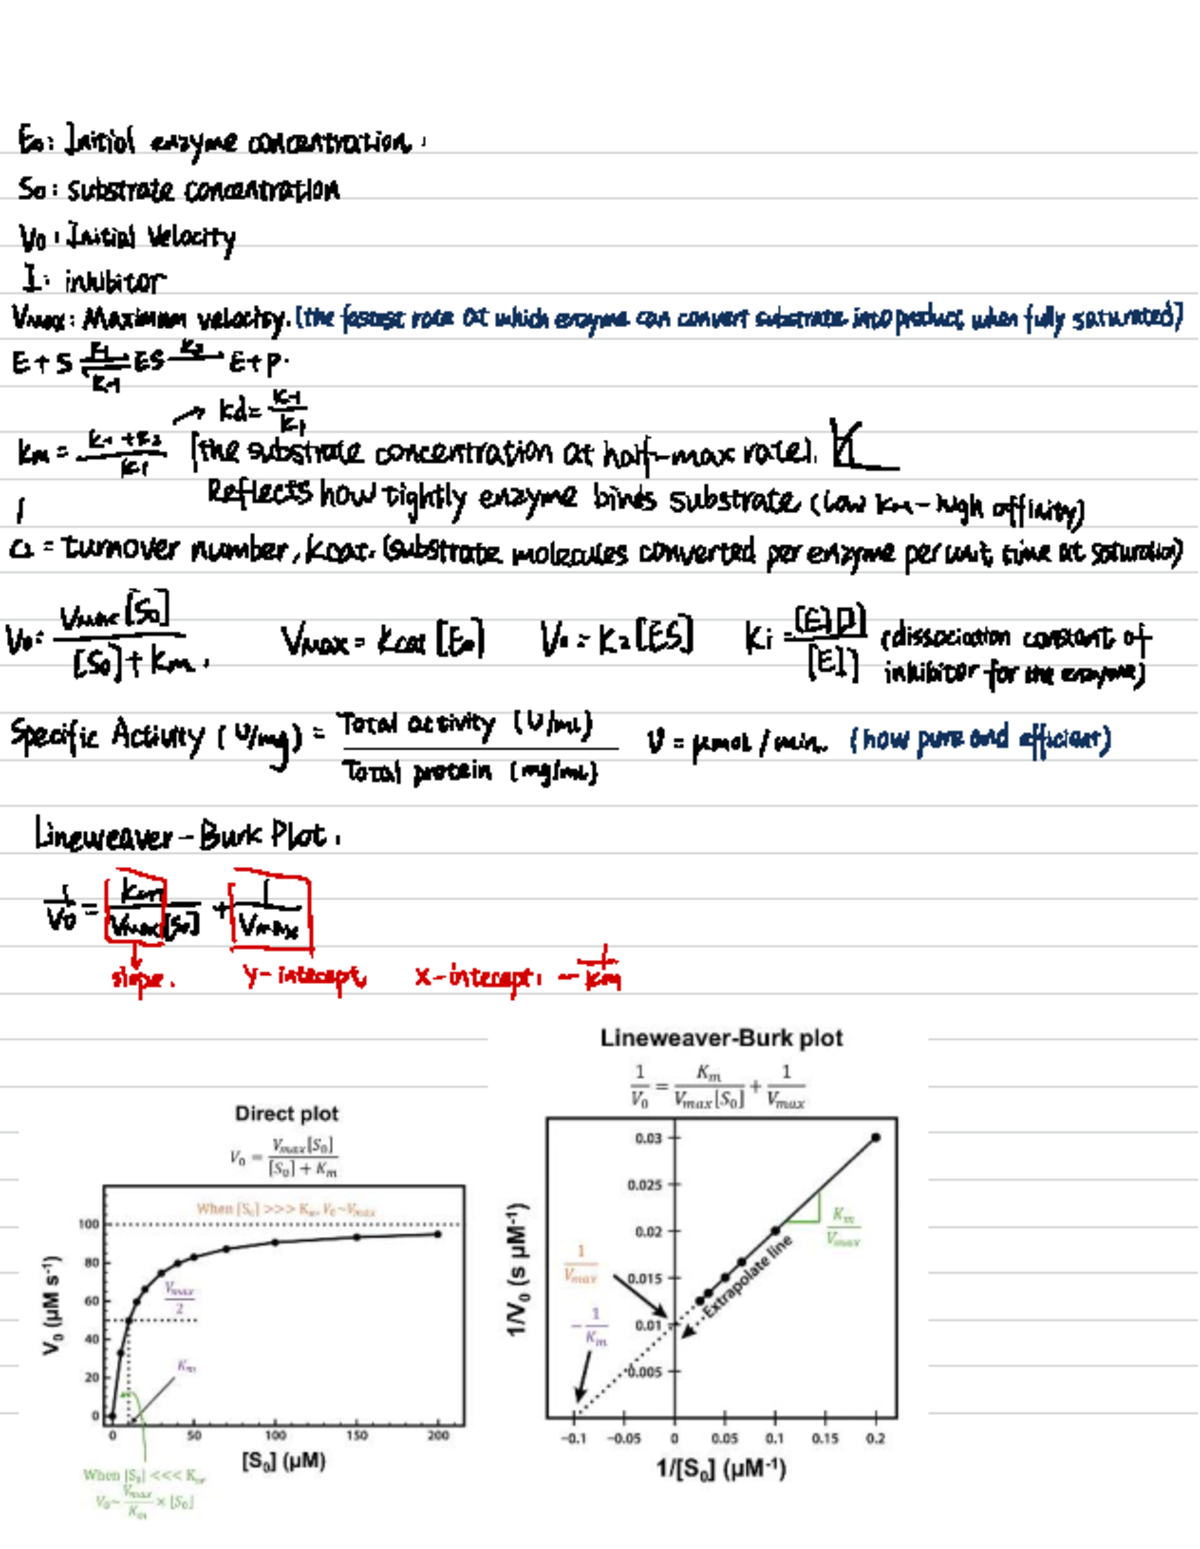 E₀: Initial enzyme concentration.
S₀: substrate concentration
V₀: Initial Velocity
I: inhibitor
Vmax: Maximum velocity. [the fastest rate at which enzyme can convert substrate into product, when fully saturated]
E + S ⇌ ES → E + P.
k₁ k₂
k₋₁
kd = k₋₁/k₁
km = (k₋₁ + k₂)/k₁ [the substrate concentration at half-max rate].
Reflects how tightly enzyme binds substrate (low km - high affinity)
= turnover number, kcat. (substrate molecules converted per enzyme per unit time at saturation)
V₀ = Vmax[S₀]/([S₀] + km. Vmax = kcat [E₀] V₀ = k₂[ES] Ki = [E][I]/[EI] (dissociation constant of
inhibitor for the enzyme)
Specific Activity (U/mg) = Total activity (U/mL)/Total protein (mg/mL) U = μmol/min. (how pure and efficient)
Lineweaver-Burk Plot.
1/V₀ = km/Vmax[S₀] + 1/Vmax
slope. y-intercept x-intercept: -1/km
Lineweaver-Burk plot
1/V₀ = Km/Vmax[S₀] + 1/Vmax
Direct plot
V₀ = Vmax[S₀]/([S₀] + Km)
When [S₀] >>> Km, V₀~Vmax
100
80
60
40
20
0
V₀ (μM s⁻¹)
Vmax/2
Km
0 50 100 150 200
[S₀] (μM)
When [S₀] <<< Km
V₀~ Vmax/Km × [S₀]
0.03
0.025
0.02
0.015
0.01
0.005
1/V₀ (s μM⁻¹)
Km/Vmax
1/Vmax
-1/Km
Extrapolate line
-0.1 -0.05 0 0.05 0.1 0.15 0.2
1/[S₀] (μM⁻¹)